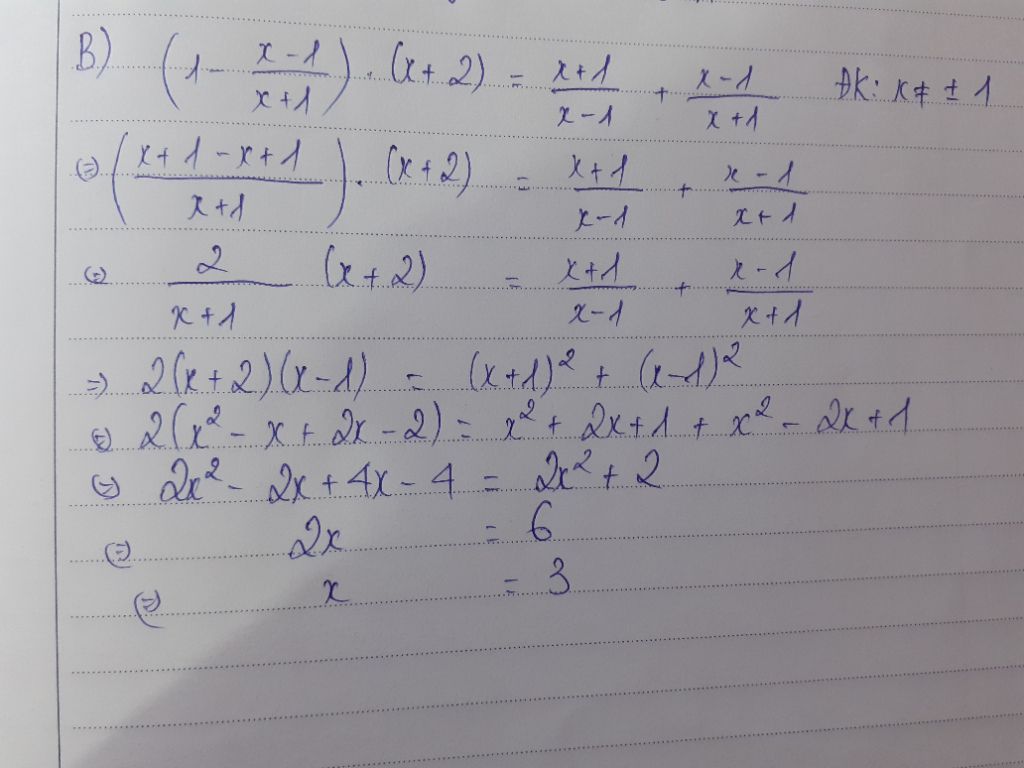 B) (1 - (x-1)/(x+1)) . (x+2) = (x+1)/(x-1) + (x-1)/(x+1) ĐK: x ≠ ± 1
(=) ((x+1-x+1)/(x+1)) . (x+2) = (x+1)/(x-1) + (x-1)/(x+1)
(=) 2/(x+1) (x+2) = (x+1)/(x-1) + (x-1)/(x+1)
=) 2(x+2)(x-1) = (x+1)² + (x-1)²
(=) 2(x² - x + 2x - 2) = x² + 2x+1 + x² - 2x+1
(=) 2x² - 2x + 4x - 4 = 2x² + 2
(=) 2x = 6
(=) x = 3